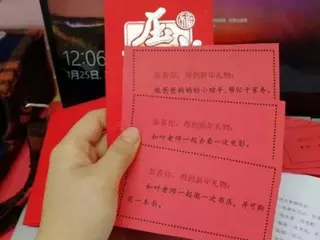 12:06
1月25日,
恭喜您,得到新年礼物:
做爸爸妈妈的小助手,帮忙干家务。
恭喜您,得到新年礼物:
和叶老师一起去看一次电影。
恭喜您,得到新年礼物:
和叶老师一起逛一次书店,并可购
买一本书。